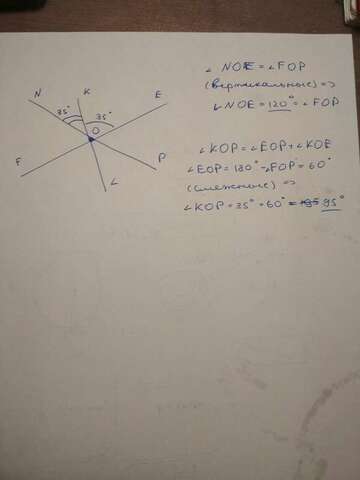 N K E
85° 35°
O
F P
L
∠ NOE = ∠ FOP
(вертикальные) =>
∠ NOE = 120° = ∠ FOP
∠ KOP = ∠ EOP + ∠ KOE
∠ EOP = 180° - ∠ FOP = 60°
(смежные) =>
∠ KOP = 35° + 60° = 95°